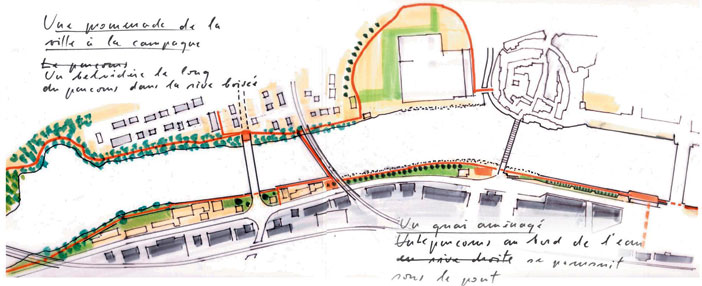 Une promenade de la
ville à la campagne
Le parcours
Un belvédère le long
du parcours dans la rive boisée
Un quai aménagé
Un parcours au bord de l'eau
en rive droite se poursuit
sous le pont